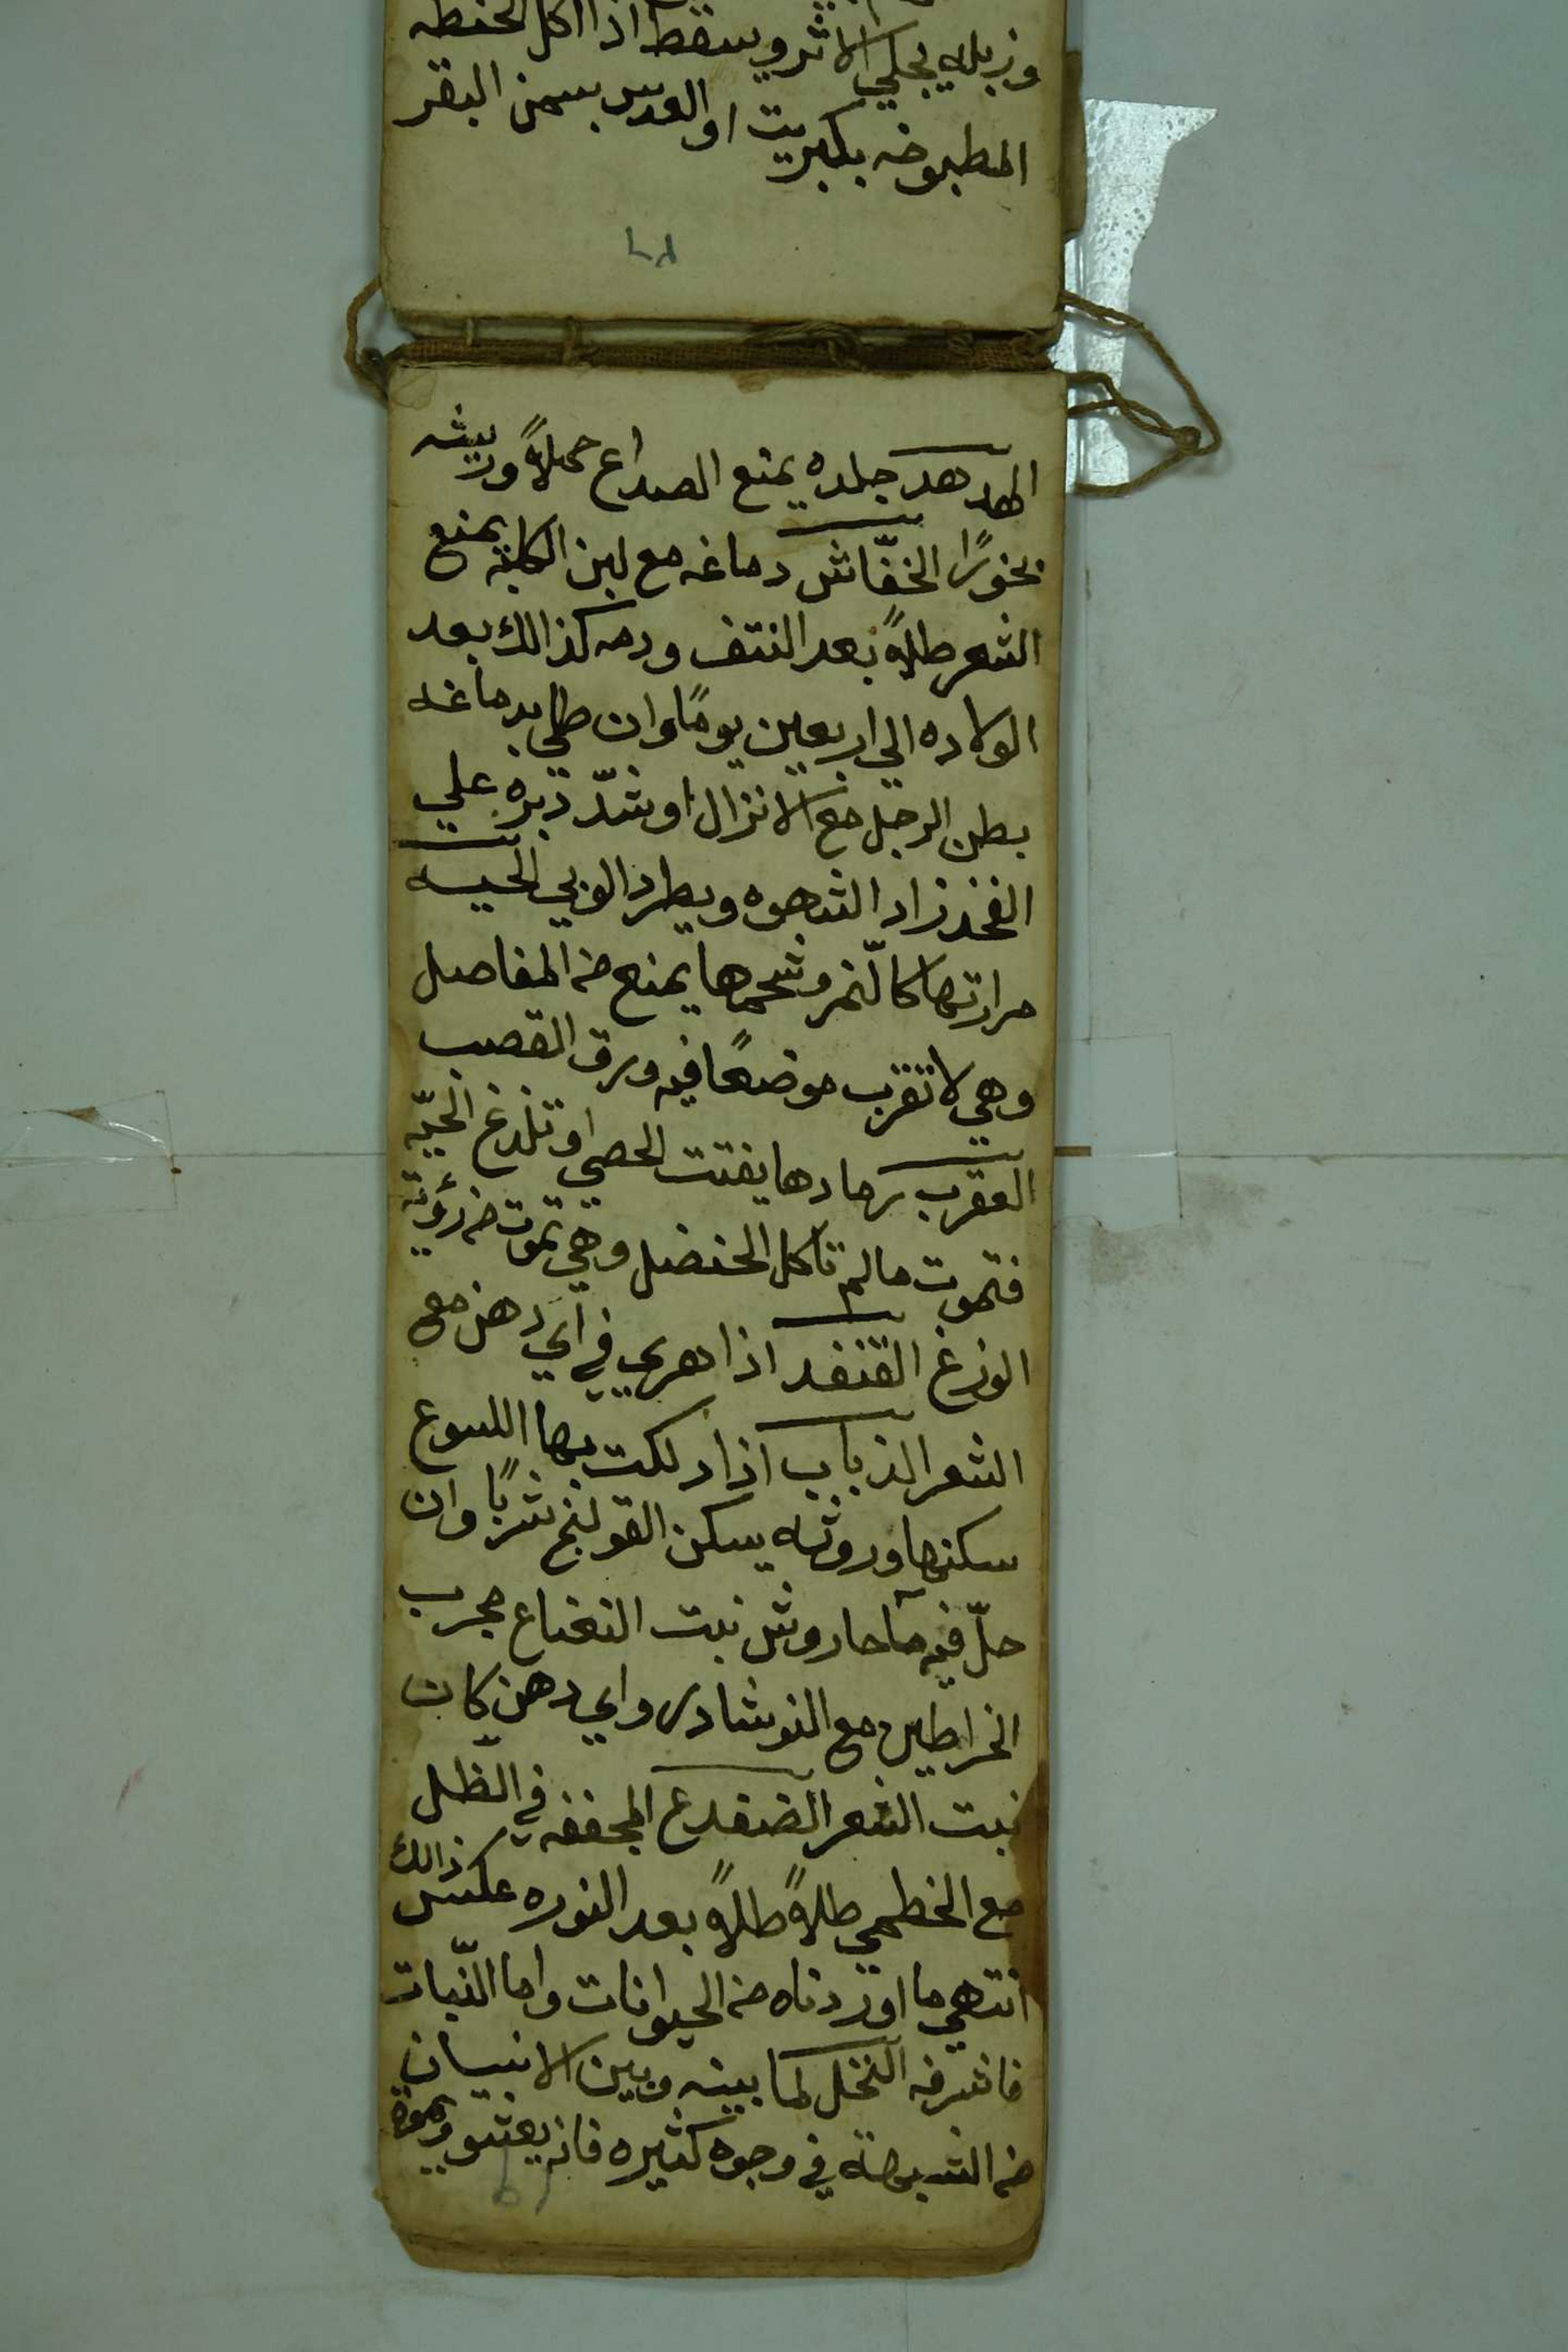 وزبله يجلي الاثر ويسقط اذا اكل الحنطه
المطبوخه بكبريت او العدس بسمن البقر
الهدهد جلده يمنع الصداع حملاً وريشه
بخورًا الخفّاش دماغه مع لبن الكلبه يمنع
الشعر طلاً بعد النتف ودمه كذالك بعد
الولاده الي اربعين يومًا وان طلي بدماغه
بطن الرجل منع الانزال او شدّ دبره علي
الفخذ زاد الشهوه ويطرد الوبي الحيه
مرارتها كالّنمر وشحمها يمنع من المفاصل
وهي لا تقرب موضعًا فيه ورق القصب
العقرب رمادها يفتت الحصي او تلدغ الحيّه
فتموت مالم تأكل الحنضل وهي تموت من رؤية
الوزغ القنفد اذا هري في اي دهن منع
الشعر الذباب اذا دلكت بها اللسوع
سكنها وروثه يسكن القولنج شربًا وان
حلّ فيه مآ حار ورش نبت النعناع مجرب
الخراطين مع النوشادر واي دهن كان
نبت الشعر الضفدع المجففه في الظل
مع الخطمي طلاً طلاً بعد النوره عكس ذالك
انتهي ما اوردناه من الحيوانات واما النّبات
فاشرفه النخل لما بينه وبين الانسان
من الشبهة في وجوه كثيره فانه يعشق